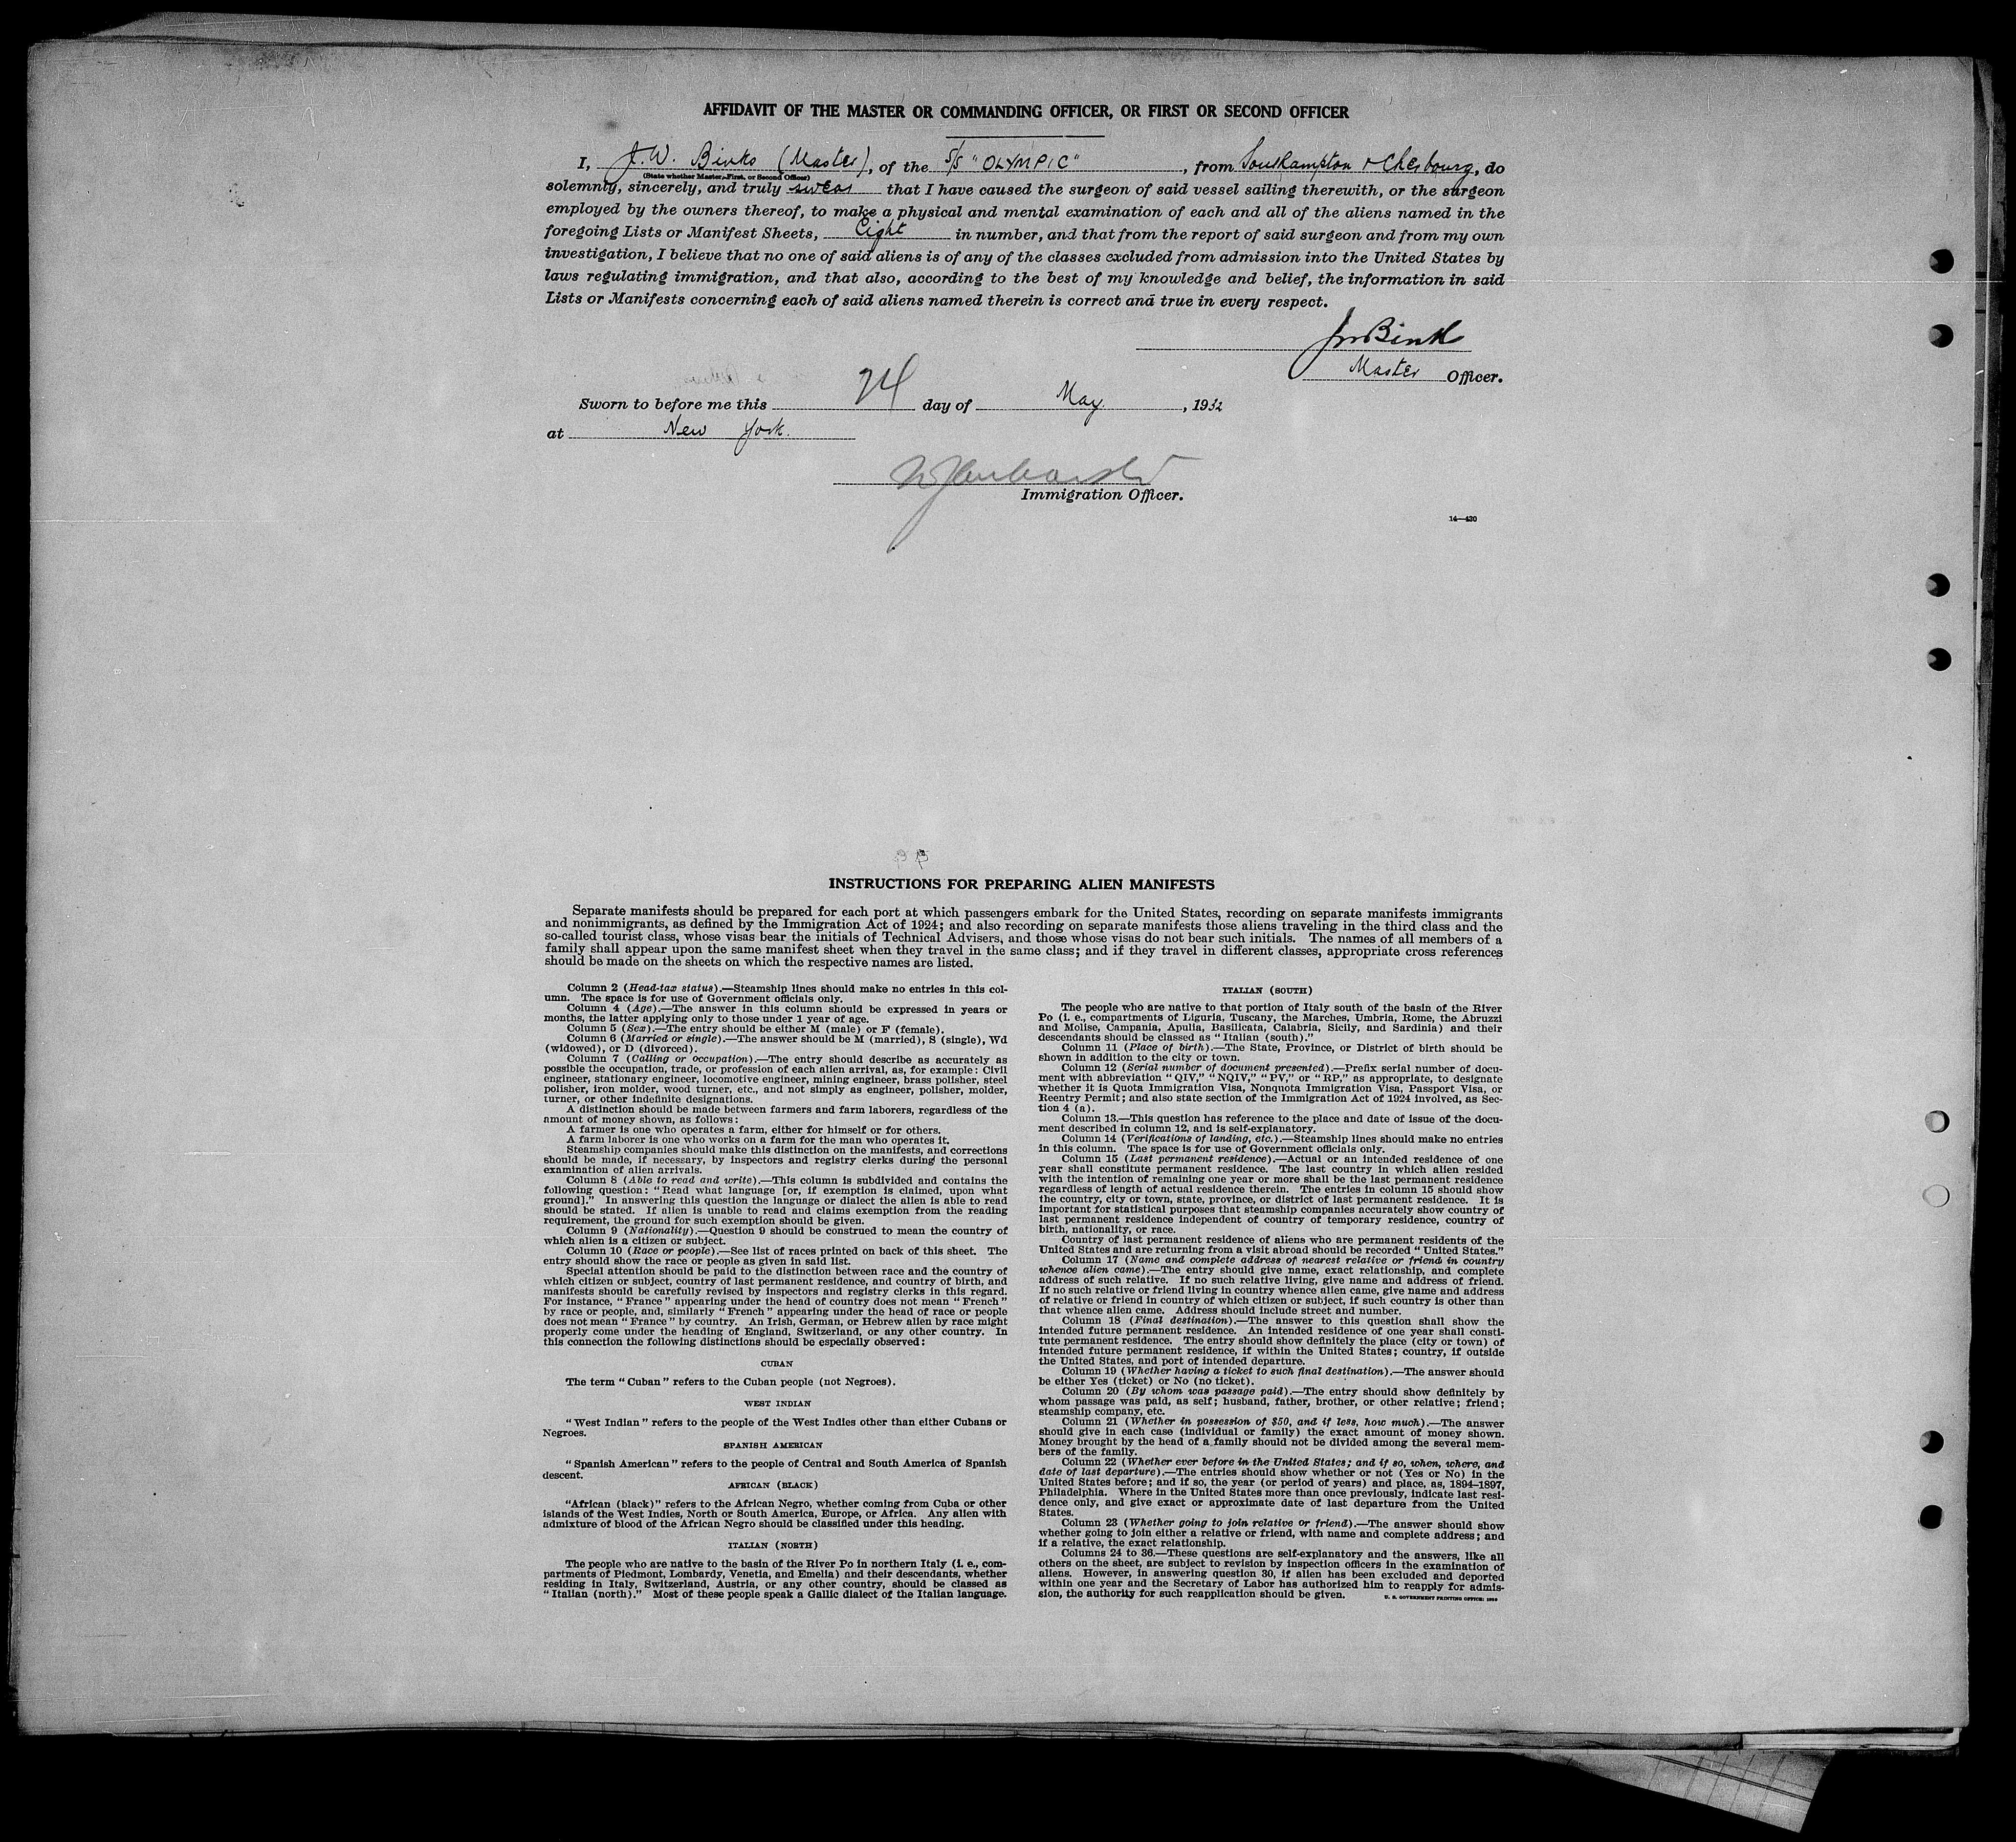 AFFIDAVIT OF THE MASTER OR COMMANDING OFFICER, OR FIRST OR SECOND OFFICER
I, J. W. Binks (Master), of the S/S "OLYMPIC", from Southampton & Cherbourg, do
(State whether Master, First, or Second Officer)
solemnly, sincerely, and truly swear that I have caused the surgeon of said vessel sailing therewith, or the surgeon
employed by the owners thereof, to make a physical and mental examination of each and all of the aliens named in the
foregoing Lists or Manifest Sheets, Eight in number, and that from the report of said surgeon and from my own
investigation, I believe that no one of said aliens is of any of the classes excluded from admission into the United States by
laws regulating immigration, and that also, according to the best of my knowledge and belief, the information in said
Lists or Manifests concerning each of said aliens named therein is correct and true in every respect.
JW Binks
Master Officer.
Sworn to before me this 24 day of May, 1932
at New York.
Immigration Officer.
14—430
INSTRUCTIONS FOR PREPARING ALIEN MANIFESTS
Separate manifests should be prepared for each port at which passengers embark for the United States, recording on separate manifests immigrants
and nonimmigrants, as defined by the Immigration Act of 1924; and also recording on separate manifests those aliens traveling in the third class and the
so-called tourist class, whose visas bear the initials of Technical Advisers, and those whose visas do not bear such initials. The names of all members of a
family shall appear upon the same manifest sheet when they travel in the same class; and if they travel in different classes, appropriate cross references
should be made on the sheets on which the respective names are listed.
Column 2 (Head-tax status).—Steamship lines should make no entries in this col-
umn. The space is for use of Government officials only.
Column 4 (Age).—The answer in this column should be expressed in years or
months, the latter applying only to those under 1 year of age.
Column 5 (Sex).—The entry should be either M (male) or F (female).
Column 6 (Married or single).—The answer should be M (married), S (single), Wd
(widowed), or D (divorced).
Column 7 (Calling or occupation).—The entry should describe as accurately as
possible the occupation, trade, or profession of each alien arrival, as, for example: Civil
engineer, stationary engineer, locomotive engineer, mining engineer, brass polisher, steel
polisher, iron molder, wood turner, etc., and not simply as engineer, polisher, molder,
turner, or other indefinite designations.
A distinction should be made between farmers and farm laborers, regardless of the
amount of money shown, as follows:
A farmer is one who operates a farm, either for himself or for others.
A farm laborer is one who works on a farm for the man who operates it.
Steamship companies should make this distinction on the manifests, and corrections
should be made, if necessary, by inspectors and registry clerks during the personal
examination of alien arrivals.
Column 8 (Able to read and write).—This column is subdivided and contains the
following question: "Read what language [or, if exemption is claimed, upon what
ground]." In answering this question the language or dialect the alien is able to read
should be stated. If alien is unable to read and claims exemption from the reading
requirement, the ground for such exemption should be given.
Column 9 (Nationality).—Question 9 should be construed to mean the country of
which alien is a citizen or subject.
Column 10 (Race or people).—See list of races printed on back of this sheet. The
entry should show the race or people as given in said list.
Special attention should be paid to the distinction between race and the country of
which citizen or subject, country of last permanent residence, and country of birth, and
manifests should be carefully revised by inspectors and registry clerks in this regard.
For instance, "France" appearing under the head of country does not mean "French"
by race or people, and, similarly "French" appearing under the head of race or people
does not mean "France" by country. An Irish, German, or Hebrew alien by race might
properly come under the heading of England, Switzerland, or any other country. In
this connection the following distinctions should be especially observed:
CUBAN
The term "Cuban" refers to the Cuban people (not Negroes).
WEST INDIAN
"West Indian" refers to the people of the West Indies other than either Cubans or
Negroes.
SPANISH AMERICAN
"Spanish American" refers to the people of Central and South America of Spanish
descent.
AFRICAN (BLACK)
"African (black)" refers to the African Negro, whether coming from Cuba or other
islands of the West Indies, North or South America, Europe, or Africa. Any alien with
admixture of blood of the African Negro should be classified under this heading.
ITALIAN (NORTH)
The people who are native to the basin of the River Po in northern Italy (i. e., com-
partments of Piedmont, Lombardy, Venetia, and Emelia) and their descendants, whether
residing in Italy, Switzerland, Austria, or any other country, should be classed as
"Italian (north)." Most of these people speak a Gallic dialect of the Italian language.
ITALIAN (SOUTH)
The people who are native to that portion of Italy south of the basin of the River
Po (i. e., compartments of Liguria, Tuscany, the Marches, Umbria, Rome, the Abruzzi
and Molise, Campania, Apulia, Basilicata, Calabria, Sicily, and Sardinia) and their
descendants should be classed as "Italian (south)."
Column 11 (Place of birth).—The State, Province, or District of birth should be
shown in addition to the city or town.
Column 12 (Serial number of document presented).—Prefix serial number of docu-
ment with abbreviation "QIV," "NQIV," "PV," or "RP," as appropriate, to designate
whether it is Quota Immigration Visa, Nonquota Immigration Visa, Passport Visa, or
Reentry Permit; and also state section of the Immigration Act of 1924 involved, as Sec-
tion 4 (a).
Column 13.—This question has reference to the place and date of issue of the docu-
ment described in column 12, and is self-explanatory.
Column 14 (Verifications of landing, etc.).—Steamship lines should make no entries
in this column. The space is for use of Government officials only.
Column 15 (Last permanent residence).—Actual or an intended residence of one
year shall constitute permanent residence. The last country in which alien resided
with the intention of remaining one year or more shall be the last permanent residence
regardless of length of actual residence therein. The entries in column 15 should show
the country, city or town, state, province, or district of last permanent residence. It is
important for statistical purposes that steamship companies accurately show country of
last permanent residence independent of country of temporary residence, country of
birth, nationality, or race.
Country of last permanent residence of aliens who are permanent residents of the
United States and are returning from a visit abroad should be recorded "United States."
Column 17 (Name and complete address of nearest relative or friend in country
whence alien came).—The entry should give name, exact relationship, and complete
address of such relative. If no such relative living, give name and address of friend.
If no such relative or friend living in country whence alien came, give name and address
of relative or friend in country of which citizen or subject, if such country is other than
that whence alien came. Address should include street and number.
Column 18 (Final destination).—The answer to this question shall show the
intended future permanent residence. An intended residence of one year shall consti-
tute permanent residence. The entry should show definitely the place (city or town) of
intended future permanent residence, if within the United States; country, if outside
the United States, and port of intended departure.
Column 19 (Whether having a ticket to such final destination).—The answer should
be either Yes (ticket) or No (no ticket).
Column 20 (By whom was passage paid).—The entry should show definitely by
whom passage was paid, as self; husband, father, brother, or other relative; friend;
steamship company, etc.
Column 21 (Whether in possession of $50, and if less, how much).—The answer
should give in each case (individual or family) the exact amount of money shown.
Money brought by the head of a family should not be divided among the several mem-
bers of the family.
Column 22 (Whether ever before in the United States; and if so, when, where, and
date of last departure).—The entries should show whether or not (Yes or No) in the
United States before; and if so, the year (or period of years) and place, as, 1894–1897,
Philadelphia. Where in the United States more than once previously, indicate last resi-
dence only, and give exact or approximate date of last departure from the United
States.
Column 23 (Whether going to join relative or friend).—The answer should show
whether going to join either a relative or friend, with name and complete address; and
if a relative, the exact relationship.
Columns 24 to 36.—These questions are self-explanatory and the answers, like all
others on the sheet, are subject to revision by inspection officers in the examination of
aliens. However, in answering question 30, if alien has been excluded and deported
within one year and the Secretary of Labor has authorized him to reapply for admis-
sion, the authority for such reapplication should be given.
U. S. GOVERNMENT PRINTING OFFICE: